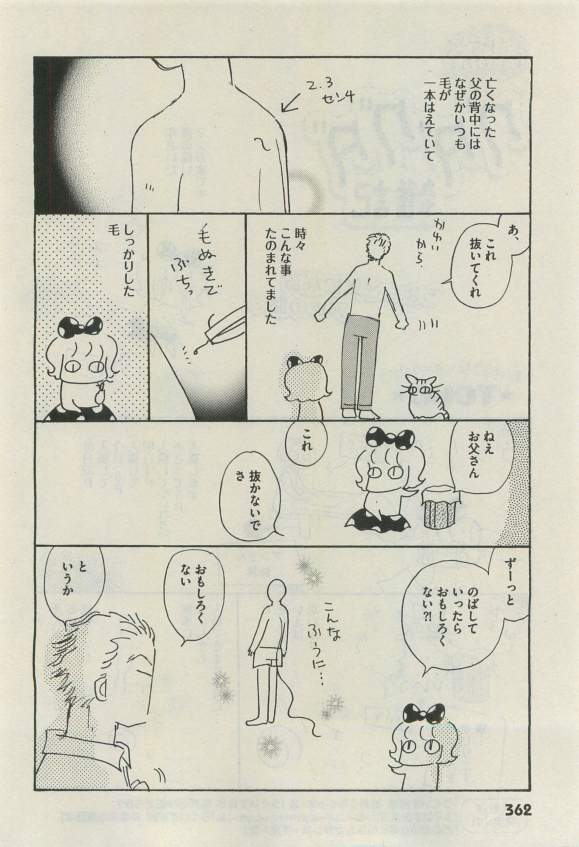 亡くなった
父の背中には
なぜかいつも
毛が
一本はえていて
2.3
センチ
あ、
これ
抜いてくれ
かゆい
から
時々
こんな事
たのまれてました
毛ぬきで
ぶちっ
しっかりした
毛
ねえ
お父さん
これ
抜かないで
さ
ずーっと
のばして
いったら
おもしろく
ない?!
こんな
ふうに…
おもしろく
ない
と
いうか
362